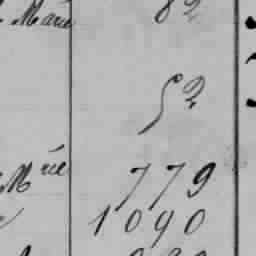 Marie 82
52
Mrie 779
1090